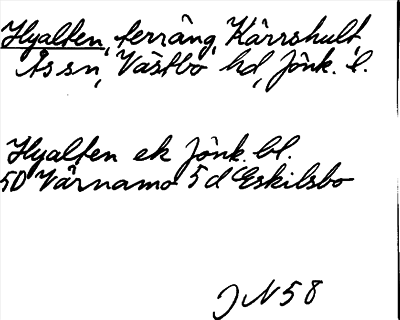 Hyalten, terräng, Kärrshult,
Ås sn, Västbo hd, Jönk. l.
Hyalten ek Jönk. bl.
5D Värnamo 5 d Eskilsbo
J N 58